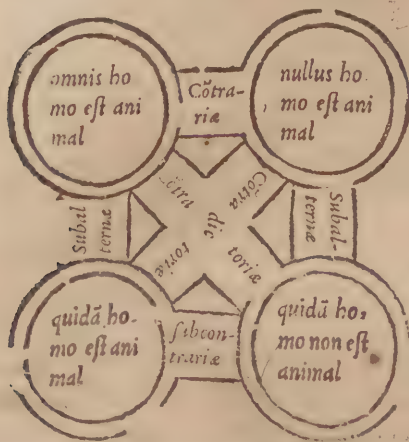 omnis ho
mo eſt ani
mal
Cõtra-
riæ
nullus ho-
mo eſt ani
mal
Subal
ternæ
Cõtra
dic
toriæ
Cõtra
toriæ
Subal-
ternæ
quidã ho-
mo eſt ani
mal
ſubcon-
trariæ
quidã ho-
mo non eſt
animal